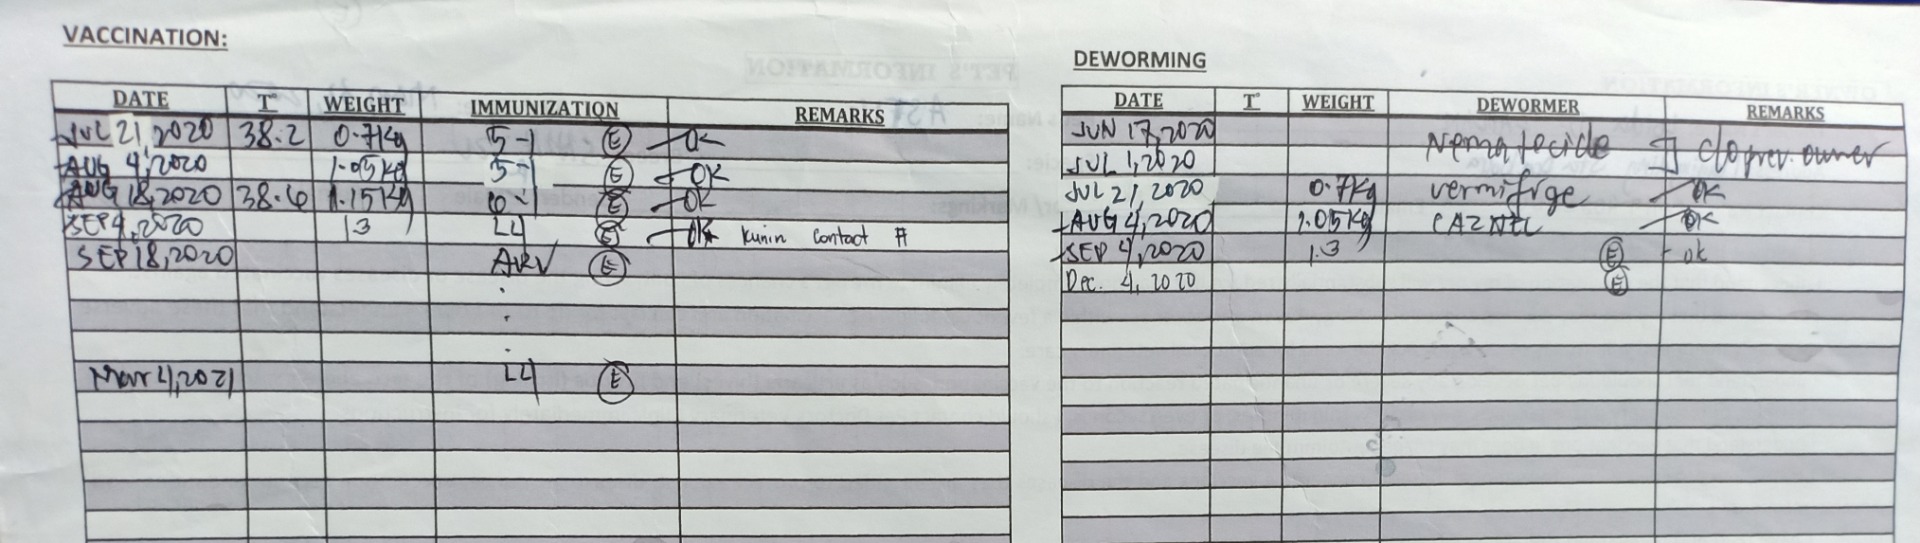 VACCINATION:
DATE T° WEIGHT IMMUNIZATION REMARKS
JUL 21, 2020 38.2 0.7Kg 5-1 E OK
AUG 4, 2020 1.05Kg 5-1 E OK
AUG 18, 2020 38.6 1.15Kg 6-1 E OK
SEP 4, 2020 1.3 L4 E OK Kunin contact #
SEP 18, 2020 ARV E
Mar 4, 2021 L4 E
DEWORMING
DATE T° WEIGHT DEWORMER REMARKS
JUN 17, 2020 Nematocide c/o prev. owner
JUL 1, 2020
JUL 21, 2020 0.7Kg vermifrge OK
AUG 4, 2020 1.05Kg CAZNEL OK
SEP 4, 2020 1.3 E ok
Dec. 4, 2020 E